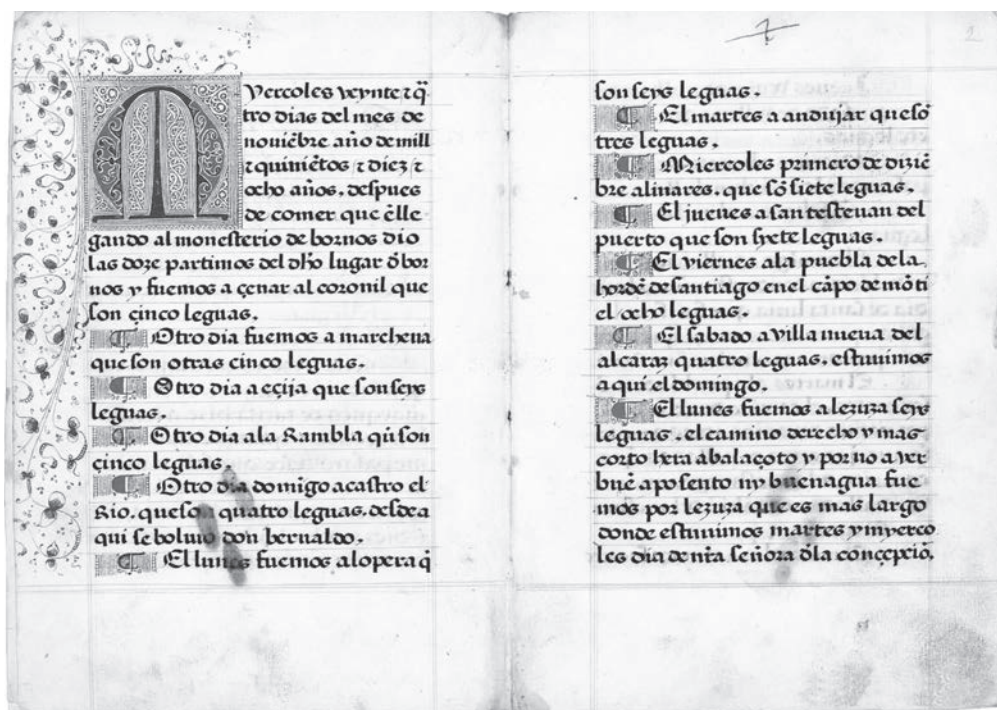 Myercoles veynte ⁊ q̃
tro dias del mes de
nouiẽbre año de mill
⁊ quiniẽtos ⁊ diez ⁊
ocho años. despues
de comer que ẽ lle
gando al monesterio de bornos dio
las doze partimos del dh̃o lugar d̃ bor
nos y fuemos a çenar al coronil que
son çinco leguas.
¶ Otro dia fuemos a marchena
que son otras cinco leguas.
¶ Otro dia a eçija que son seys
leguas.
¶ Otro dia ala Rambla qũ son
çinco leguas.
¶ Otro dia domĩgo a castro el
Rio. que son quatro leguas. desde a
qui se boluio don bernaldo.
¶ El lunes fuemos alopera q̃
7
2
son seys leguas.
¶ El martes a andujar que sõ
tres leguas.
¶ Miercoles primero de diziẽ
bre alinares. que sõ siete leguas.
¶ El jueues a santesteuan del
puerto que son syete leguas.
¶ El viernes ala puebla dela
hordẽ de santiago enel cãpo de mõti
el ocho leguas.
¶ El sabado a villa nueua del
alcaraz quatro leguas. estuuimos
a qui el domingo.
¶ El lunes fuemos a lezuza seys
leguas. el camino derecho y mas
corto hera abalaçoto y por no aver
buẽ aposento ny buen agua fue
mos por lezuza que es mas largo
donde estuuimos martes y myerco
les dia de nr̃a señora d̃la conçepciõ.